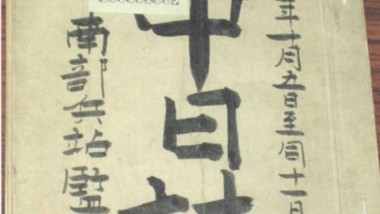 年十月五日至同十一
中日
南部兵站監